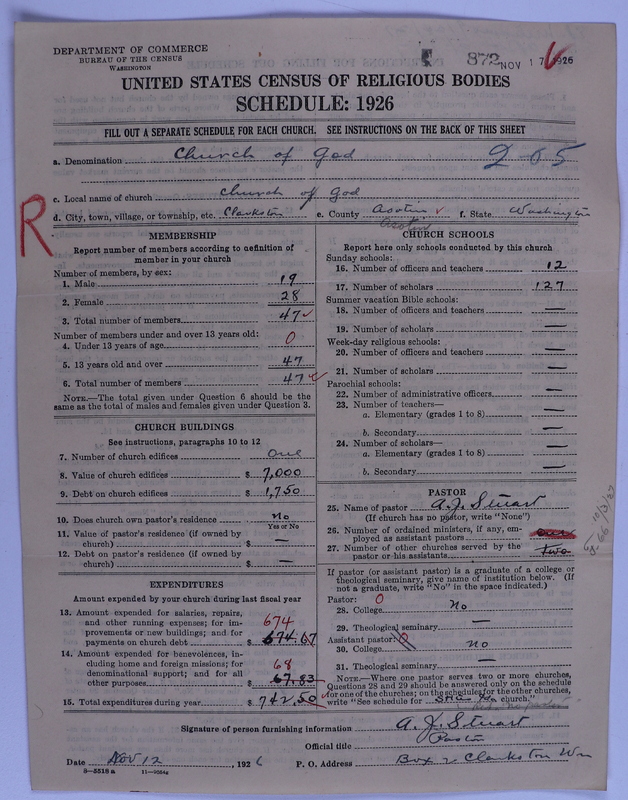 DEPARTMENT OF COMMERCE
BUREAU OF THE CENSUS
WASHINGTON
872 NOV 17 1926
UNITED STATES CENSUS OF RELIGIOUS BODIES
SCHEDULE: 1926
FILL OUT A SEPARATE SCHEDULE FOR EACH CHURCH. SEE INSTRUCTIONS ON THE BACK OF THIS SHEET
a. Denomination Church of God 265
c. Local name of church Church of God
R
d. City, town, village, or township, etc. Clarkston e. County Asotin f. State Washington
Asotin
MEMBERSHIP
Report number of members according to definition of
member in your church
Number of members, by sex:
1. Male 19
2. Female 28
3. Total number of members 47
Number of members under and over 13 years old:
4. Under 13 years of age 0
5. 13 years old and over 47
6. Total number of members 47
NOTE.—The total given under Question 6 should be
same as the total of males and females given under Question 3.
CHURCH BUILDINGS
See instructions, paragraphs 10 to 12
7. Number of church edifices one
8. Value of church edifices $ 7,000
9. Debt on church edifices $ 1,750
10. Does church own pastor's residence No
Yes or No
11. Value of pastor's residence (if owned by
church) $ —
12. Debt on pastor's residence (if owned by
church) $ —
EXPENDITURES
Amount expended by your church during last fiscal year
13. Amount expended for salaries, repairs,
and other running expenses; for im-
provements or new buildings; and for
payments on church debt $ 674.67
674
14. Amount expended for benevolences, in-
cluding home and foreign missions; for
denominational support; and for all
other purposes $ 67.83
68
15. Total expenditures during year $ 742.50
CHURCH SCHOOLS
Report here only schools conducted by this church
Sunday schools:
16. Number of officers and teachers 12
17. Number of scholars 127
Summer vacation Bible schools:
18. Number of officers and teachers —
19. Number of scholars —
Week-day religious schools:
20. Number of officers and teachers —
21. Number of scholars —
Parochial schools:
22. Number of administrative officers —
23. Number of teachers—
a. Elementary (grades 1 to 8) —
b. Secondary —
24. Number of scholars—
a. Elementary (grades 1 to 8) —
b. Secondary —
PASTOR
25. Name of pastor A. J. Stuart
(If church has no pastor, write "None")
26. Number of ordained ministers, if any, em-
ployed as assistant pastors
27. Number of other churches served by the
pastor or his assistants two
If pastor (or assistant pastor) is a graduate of a college or
theological seminary, give name of institution below. (If
not a graduate, write "No" in the space indicated.)
Pastor: 0
28. College No
29. Theological seminary —
Assistant pastor: 0
30. College No
31. Theological seminary —
NOTE.—Where one pastor serves two or more churches,
Questions 28 and 29 should be answered only on the schedule
for one of the churches; on the schedules for the other churches,
write "See schedule for church."
Signature of person furnishing information A. J. Stuart
Official title Pastor
Date Nov 12, 1926 P. O. Address Box 2 Clarkston Wn
8-5518a